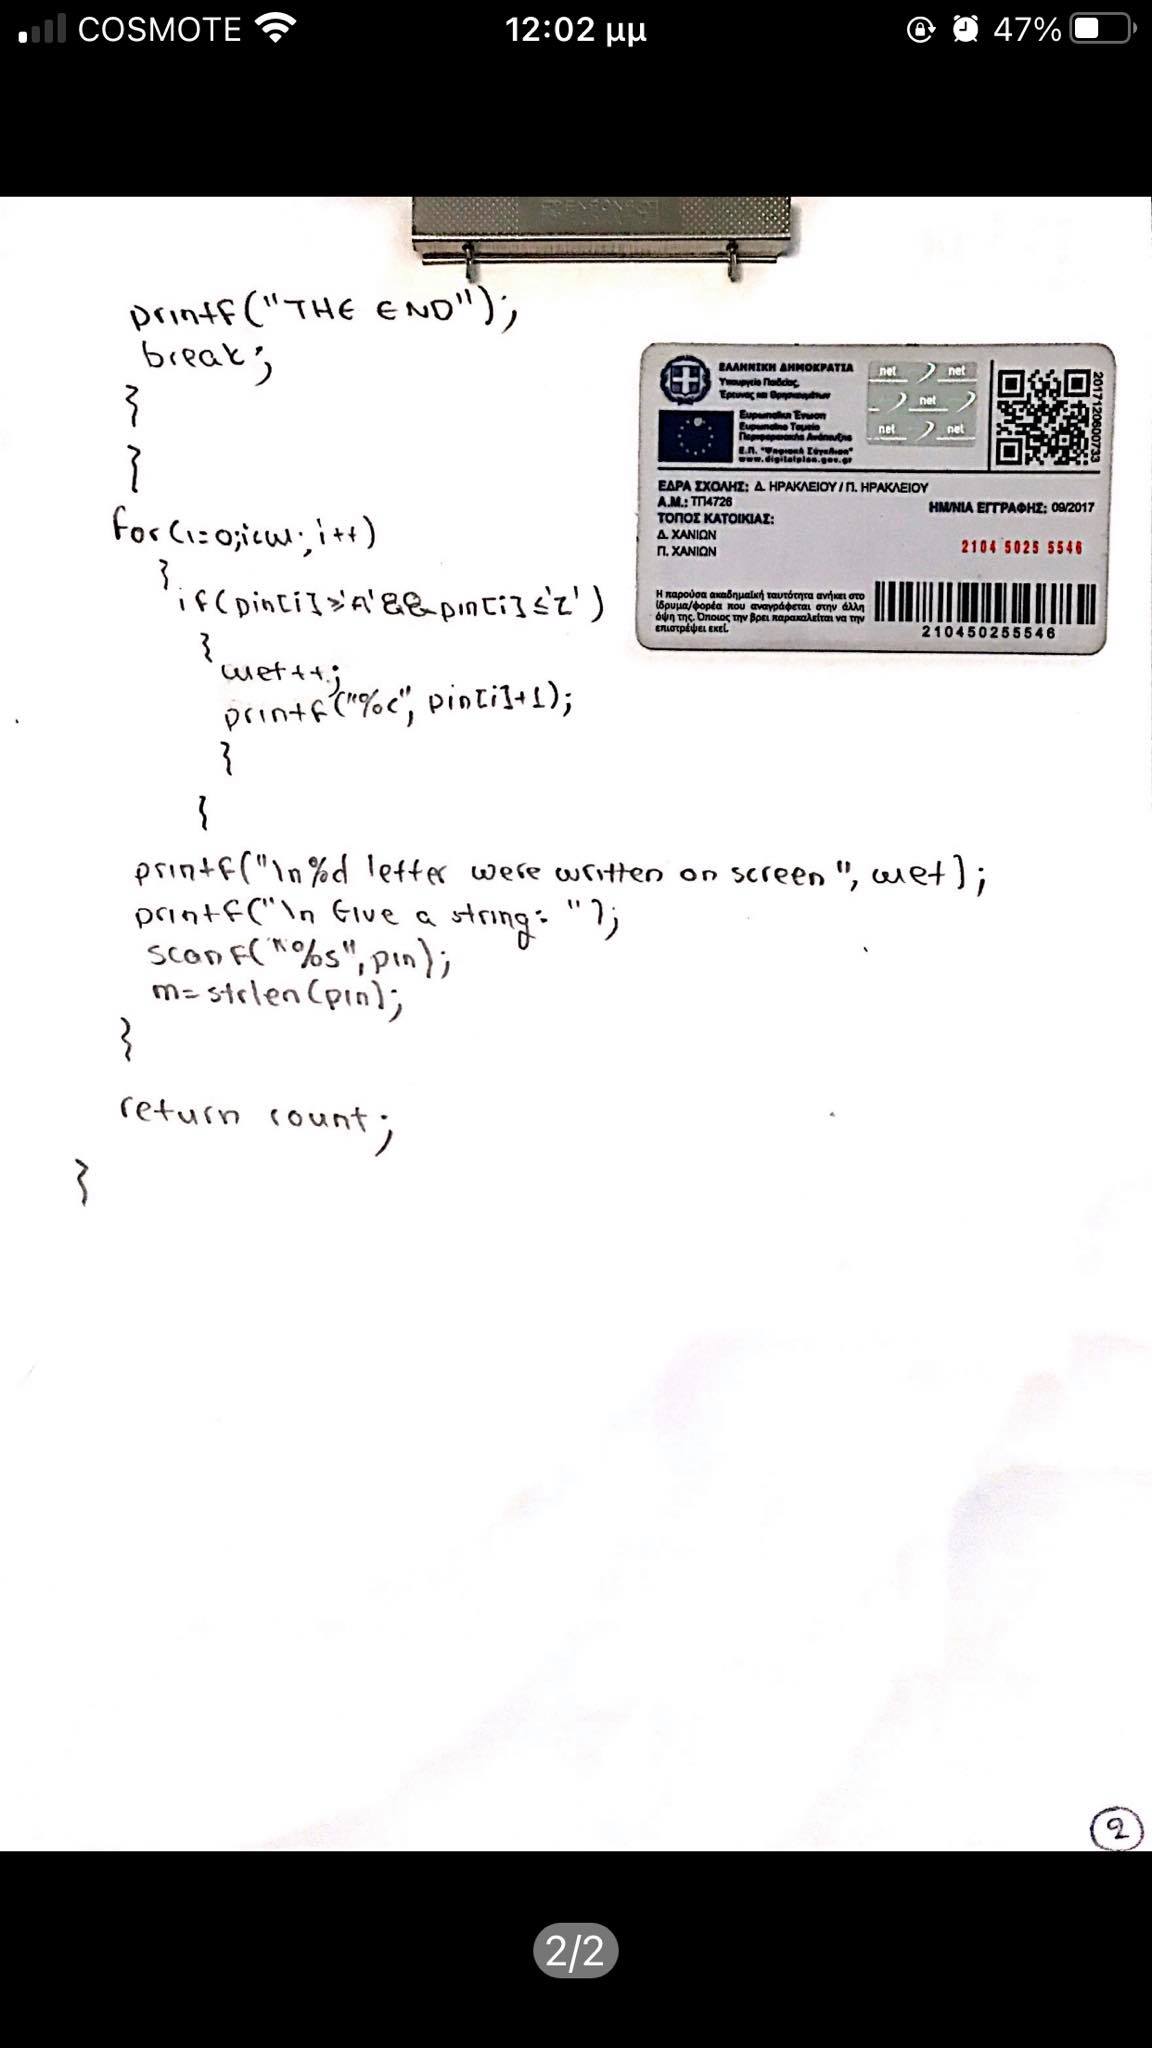 COSMOTE
12:02 μμ
47%
printf("THE END");
break;
}
}
for(i=0;i<m;i++)
{
if(pin[i]≥'A'&&pin[i]≤'Z')
{
met++;
printf("%c", pin[i]+1);
}
}
printf("\n%d letter were written on screen", met);
printf("\n Give a string: ");
scanf("%s", pin);
m=strlen(pin);
}
return count;
}
ΕΛΛΗΝΙΚΗ ΔΗΜΟΚΡΑΤΙΑ
Υπουργείο Παιδείας,
Έρευνας και Θρησκευμάτων
Ευρωπαϊκή Ένωση
Ευρωπαϊκό Ταμείο
Περιφερειακής Ανάπτυξης
Ε.Π. "Ψηφιακή Σύγκλιση"
www.digitalplan.gov.gr
net net
net
net net
201712060733
ΕΔΡΑ ΣΧΟΛΗΣ: Δ. ΗΡΑΚΛΕΙΟΥ / Π. ΗΡΑΚΛΕΙΟΥ
Α.Μ.: ΤΠ4726
ΗΜ/ΝΙΑ ΕΓΓΡΑΦΗΣ: 09/2017
ΤΟΠΟΣ ΚΑΤΟΙΚΙΑΣ:
Δ. ΧΑΝΙΩΝ
Π. ΧΑΝΙΩΝ
2104 5025 5546
Η παρούσα ακαδημαϊκή ταυτότητα ανήκει στο
ίδρυμα/φορέα που αναγράφεται στην άλλη
όψη της. Όποιος την βρει παρακαλείται να την
επιστρέψει εκεί.
210450255546
2
2/2